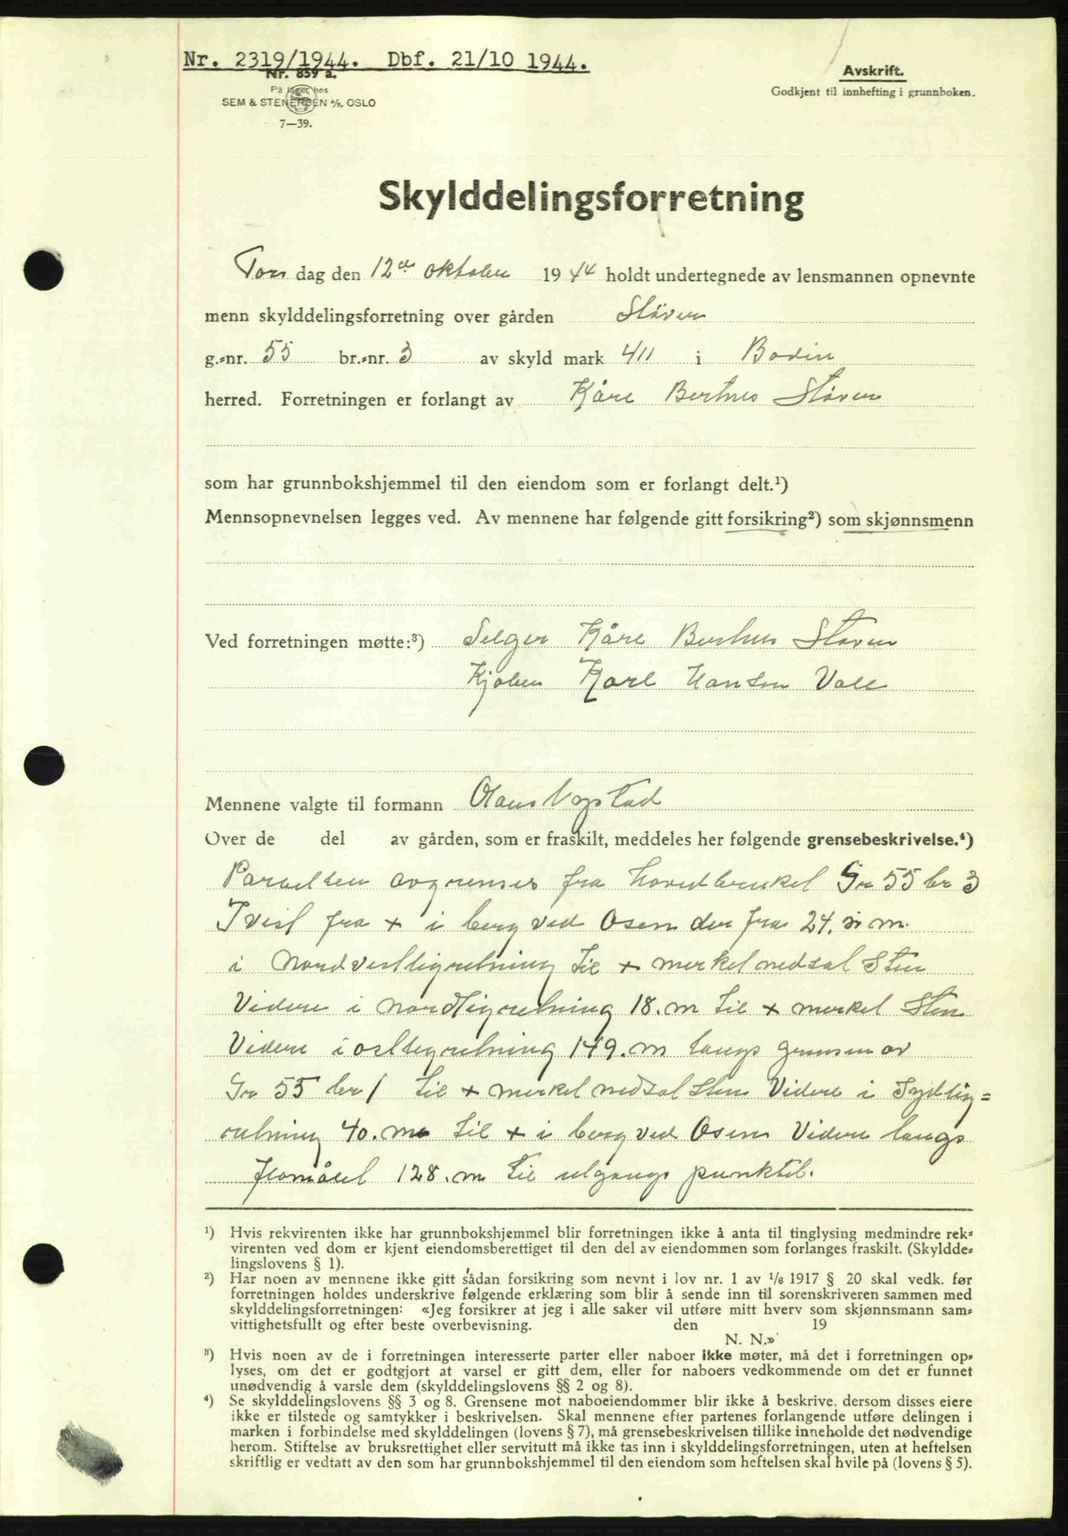 Nr. 2319/1944. Dbf. 21/10 1944.
Nr. 859 a.
På lager hos
SEM & STENERSEN A/S, OSLO
7—39.
Avskrift.
Godkjent til innhefting i grunnboken.
Skylddelingsforretning
Tors dag den 12te oktober 1944 holdt undertegnede av lensmannen opnevnte
menn skylddelingsforretning over gården Støver
g.-nr. 55 br.-nr. 3 av skyld mark 4,11 i Bodin
herred. Forretningen er forlangt av Kåre Berthus Støver
som har grunnbokshjemmel til den eiendom som er forlangt delt.¹)
Mennsopnevnelsen legges ved. Av mennene har følgende gitt forsikring²) som skjønnsmenn
Ved forretningen møtte:³) Selger Kåre Berthus Støver
Kjøber Karl Hansen Valle
Mennene valgte til formann Olaus
Over de del av gården, som er fraskilt, meddeles her følgende grensebeskrivelse.⁴)
Parsellen avgrenses fra hovedbruket Gr 55 br 3
I vest fra + i berg ved Osen der fra 24. m.
i Nordvestlig retning til + merket nedsat Sten
Videre i nordlig retning 18. m til + merket Sten
Videre i ostlig retning 149. m langs grensen av
Gr 55 br 1 til + merket nedsat sten Videre i Sydlig=
retning 40. m til + i berg ved Osen Videre langs
flomålet 128. m til utgangs punktet.
¹) Hvis rekvirenten ikke har grunnbokshjemmel blir forretningen ikke å anta til tinglysing medmindre rek-
virenten ved dom er kjent eiendomsberettiget til den del av eiendommen som forlanges fraskilt. (Skyldde-
lingslovens § 1).
²) Har noen av mennene ikke gitt sådan forsikring som nevnt i lov nr. 1 av 1/6 1917 § 20 skal vedk. før
forretningen holdes underskrive følgende erklæring som blir å sende inn til sorenskriveren sammen med
skylddelingsforretningen: «Jeg forsikrer at jeg i alle saker vil utføre mitt hverv som skjønnsmann sam-
vittighetsfullt og efter beste overbevisning. den 19
N. N.»
³) Hvis noen av de i forretningen interesserte parter eller naboer ikke møter, må det i forretningen op-
lyses, om det er godtgjort at varsel er gitt dem, eller for naboers vedkommende om det er funnet
unødvendig å varsle dem (skylddelingslovens §§ 2 og 8).
⁴) Se skylddelingslovens §§ 3 og 8. Grensene mot naboeiendommer blir ikke å beskrive, dersom disses eiere
ikke er tilstede og samtykker i beskrivelsen. Skal mennene efter partenes forlangende utføre delingen i
marken i forbindelse med skylddelingen (lovens § 7), må grensebeskrivelsen tillike inneholde det nødvendige
herom. Stiftelse av bruksrettighet eller servitutt må ikke tas inn i skylddelingsforretningen, uten at heftelsen
skriftlig er vedtatt av den som har grunnbokshjemmel til den eiendom som heftelsen skal hvile på (lovens § 5).